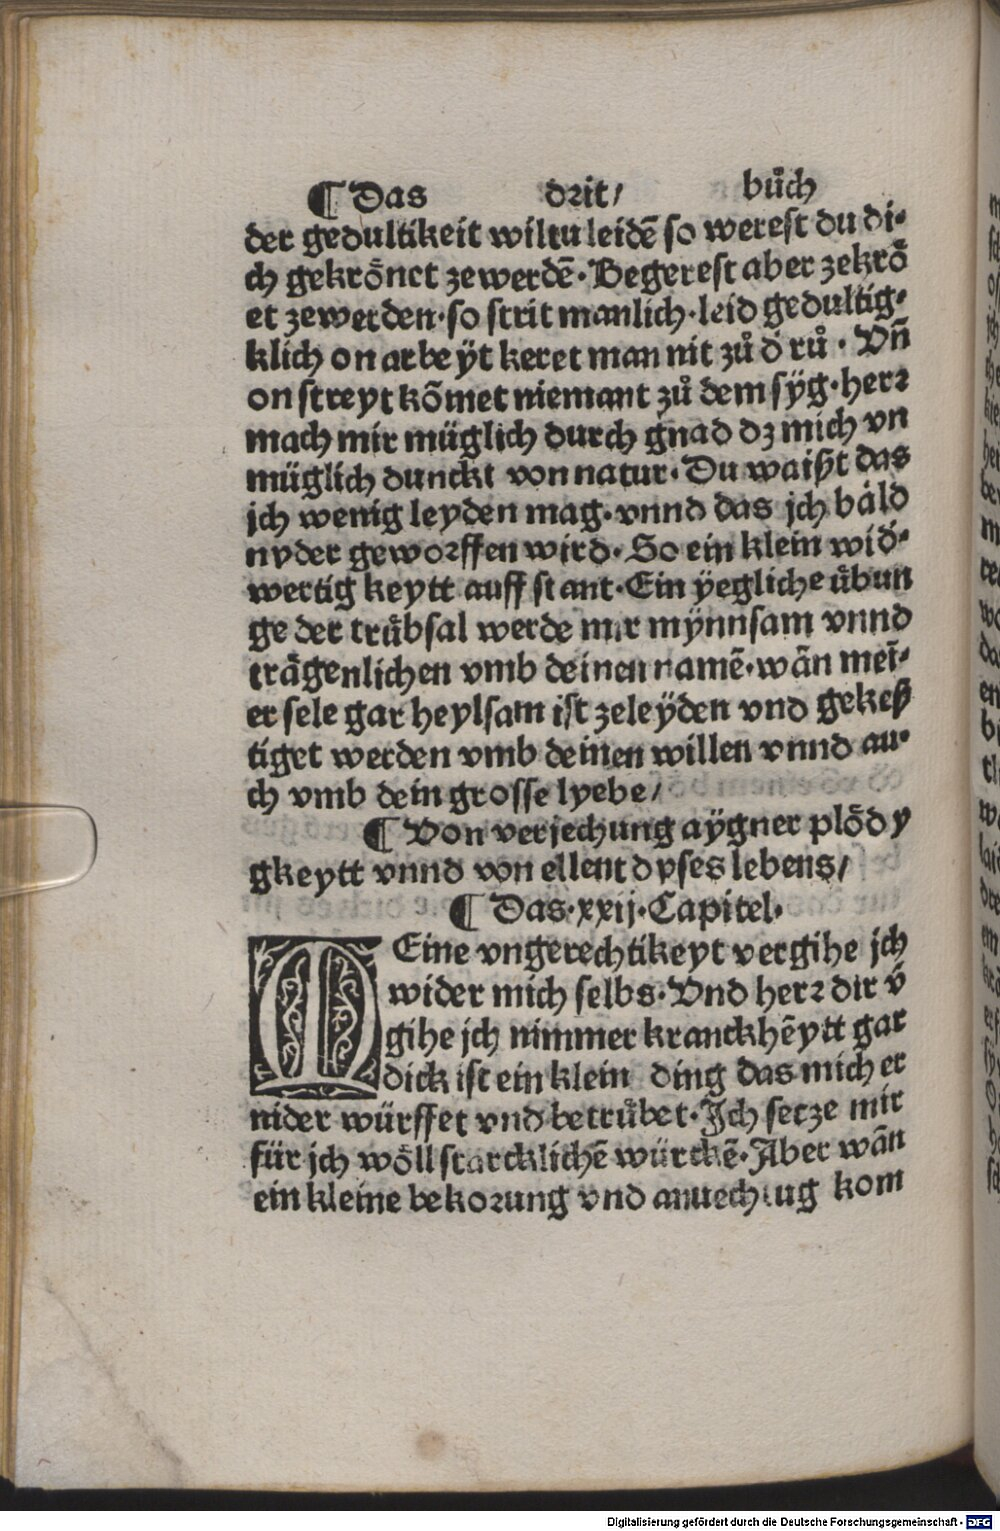 ¶ Das drit/ bůch
der gedultikeit wiltu leidẽ so werest du di⸗
ch gekrönet zewerdẽ. Begerest aber zekrö̃
et zewerden. so strit manlich. leid gedultig⸗
klich on arbeÿt keret man nit zů d̕ rů. Vñ
on streyt kõmet niemant zů dem sÿg. herꝛ
mach mir müglich durch gnad dꝫ mich vn
müglich dunckt von natur. Du waißt das
jch wenig leyden mag. vnnd das jch bäld
nyder geworffen wird. So ein klein wid̕⸗
wertigkeytt auff stant. Ein ÿegliche ůbun
ge der trůbsal werde mir mÿnnsam vnnd
trägenlichen vmb deinen namẽ. wãn meĩ⸗
er sele gar heylsam ist zeleÿden vnd gekeß
tiget werden vmb deinen willen vnnd au⸗
ch vmb dein grosse lyebe/
¶ Von verjechung aÿgner plödy
gkeytt vnnd von ellent dyses lebens/
¶ Das. xxij. Capitel.
MEine vngerechtikeyt vergihe jch
wider mich selbs. Vnd herꝛ dir v̕
gihe jch nimmer kranckhẽytt gar
dick ist ein klein ding das mich er
nider würffet vnd betrůbet. Jch setze mir
für jch wöll starcklichẽ würckẽ. Aber wãn
ein kleine bekorung vnd anuechtug kom
Digitalisierung gefördert durch die Deutsche Forschungsgemeinschaft - DFG